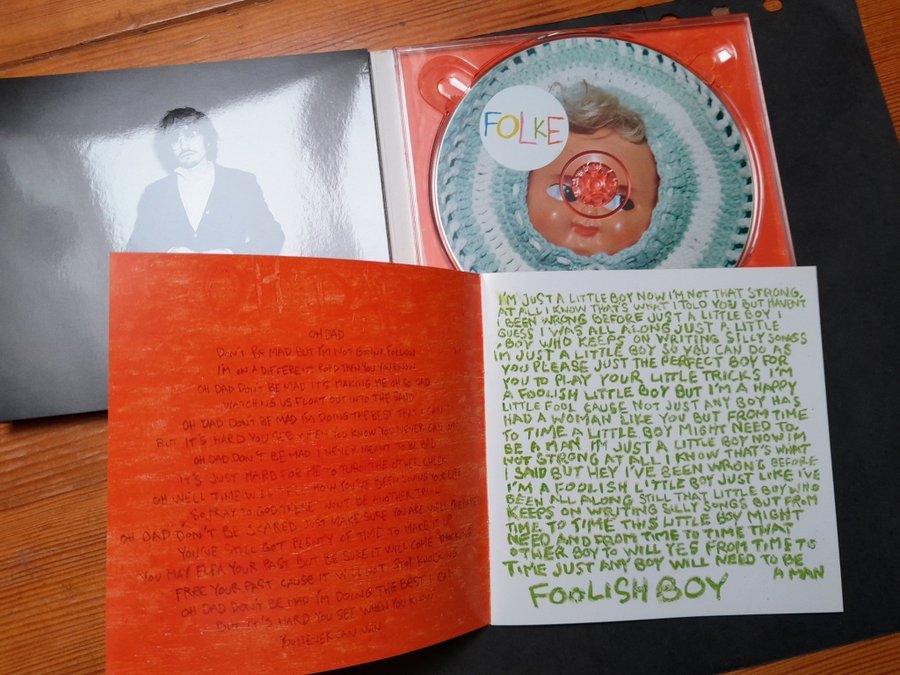 FOLKE
OH DAD
OH DAD
DON'T BE MAD BUT I'M NOT GONNA FOLLOW
I'M ON A DIFFERENT ROAD THEN YOU YOU KNOW
OH DAD DON'T BE MAD IT'S MAKING ME OH SO SAD
WATCHING US FLOAT OUT INTO THE SAND
OH DAD DON'T BE MAD I'M DOING THE BEST THAT I CAN
BUT IT'S HARD YOU SEE WHEN YOU KNOW YOU NEVER CAN WIN
OH DAD DON'T BE MAD I NEVER MEANT TO BE BAD
IT'S JUST HARD FOR ME TO TURN THE OTHER CHEEK
OH WELL TIME WILL TELL HOW YOU'VE BEEN LIVING YOUR LIFE
SO PRAY TO GOD THERE WON'T BE ANOTHER TRIAL
OH DAD DON'T BE SCARED JUST MAKE SURE YOU ARE WELL PREPARED
YOU'VE STILL GOT PLENTY OF TIME TO MAKE IT UP
YOU MAY FLEA YOUR PAST BUT BE SURE IT WILL COME KNOCKING
FREE YOUR PAST CAUSE IT WILL NOT STOP KNOCKING
OH DAD DON'T BE MAD I'M DOING THE BEST I CAN
BUT IT'S HARD YOU SEE WHEN YOU KNOW
YOU NEVER CAN WIN
I'M JUST A LITTLE BOY NOW I'M NOT THAT STRONG
AT ALL I KNOW THAT'S WHAT I TOLD YOU BUT HAVEN'T
I BEEN WRONG BEFORE JUST A LITTLE BOY I
GUESS I WAS ALL ALONG JUST A LITTLE
BOY WHO KEEPS ON WRITING SILLY SONGS
I'M JUST A LITTLE BOY SO YOU CAN DO AS
YOU PLEASE JUST THE PERFECT BOY FOR
YOU TO PLAY YOUR LITTLE TRICKS I'M
A FOOLISH LITTLE BOY BUT I'M A HAPPY
LITTLE FOOL CAUSE NOT JUST ANY BOY HAS
HAD A WOMAN LIKE YOU BUT FROM TIME
TO TIME A LITTLE BOY MIGHT NEED TO
BE A MAN I'M JUST A LITTLE BOY NOW I'M
NOT STRONG AT ALL I KNOW THAT'S WHAT
I SAID BUT HEY I'VE BEEN WRONG BEFORE
I'M A FOOLISH LITTLE BOY JUST LIKE I'VE
BEEN ALL ALONG STILL THAT LITTLE BOY WHO
KEEPS ON WRITING SILLY SONGS BUT FROM
TIME TO TIME THIS LITTLE BOY MIGHT
NEED AND FROM TIME TO TIME THAT
OTHER BOY TO WILL YES FROM TIME TO
TIME JUST ANY BOY WILL NEED TO BE
A MAN
FOOLISH BOY